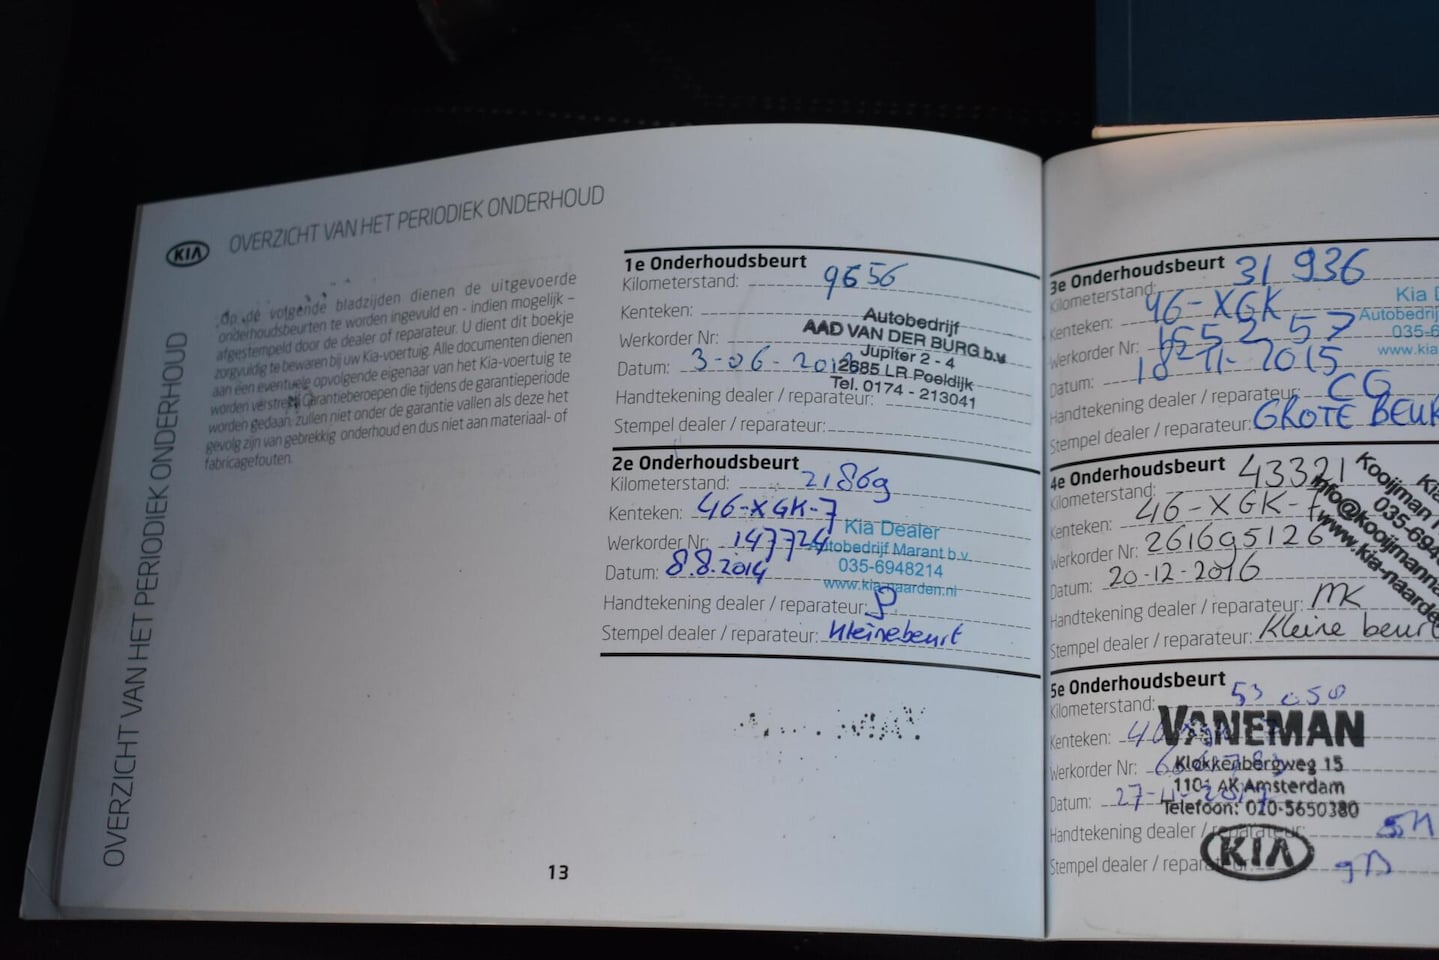 KIA OVERZICHT VAN HET PERIODIEK ONDERHOUD
OVERZICHT VAN HET PERIODIEK ONDERHOUD
Op de volgende bladzijden dienen de uitgevoerde
onderhoudsbeurten te worden ingevuld en - indien mogelijk -
afgestempeld door de dealer of reparateur. U dient dit boekje
zorgvuldig te bewaren bij uw Kia-voertuig. Alle documenten dienen
aan een eventuele opvolgende eigenaar van het Kia-voertuig te
worden verstrekt. Garantieberoepen die tijdens de garantieperiode
worden gedaan, zullen niet onder de garantie vallen als deze het
gevolg zijn van gebrekkig onderhoud en dus niet aan materiaal- of
fabricagefouten.
1e Onderhoudsbeurt
Kilometerstand: 9656
Kenteken:
Werkorder Nr:
Datum: 3-06-
Handtekening dealer / reparateur:
Stempel dealer / reparateur:
Autobedrijf
AAD VAN DER BURG b.v.
Jupiter 2 - 4
2685 LR Poeldijk
Tel. 0174 - 213041
2e Onderhoudsbeurt
Kilometerstand: 21869
Kenteken: 46-XGK-7
Werkorder Nr: 147724
Datum: 8.8.2014
Handtekening dealer / reparateur:
Stempel dealer / reparateur: Kleinebeurt
Kia Dealer
Autobedrijf Marant b.v.
035-6948214
www.kia-naarden.nl
13
3e Onderhoudsbeurt
Kilometerstand: 31 936
Kenteken: 46-XGK
Werkorder Nr: 155257
Datum: 18-11-2015
Handtekening dealer / reparateur: CG
Stempel dealer / reparateur: GROTE BEUR
Kia D
Autobedrij
035-6
www.kia
4e Onderhoudsbeurt
Kilometerstand: 43321
Kenteken: 46-XGK-7
Werkorder Nr: 261695126
Datum: 20-12-2016
Handtekening dealer / reparateur: MK
Stempel dealer / reparateur: Kleine beurt
Kia
Kooijman
035-694
info@kooijmanna
www.kia-naarde
5e Onderhoudsbeurt
Kilometerstand: 53 050
Kenteken:
Werkorder Nr:
Datum: 27-11-2017
Handtekening dealer / reparateur:
Stempel dealer / reparateur:
VANEMAN
Klokkenbergweg 15
1101 AK Amsterdam
Telefoon: 020-5650380
KIA